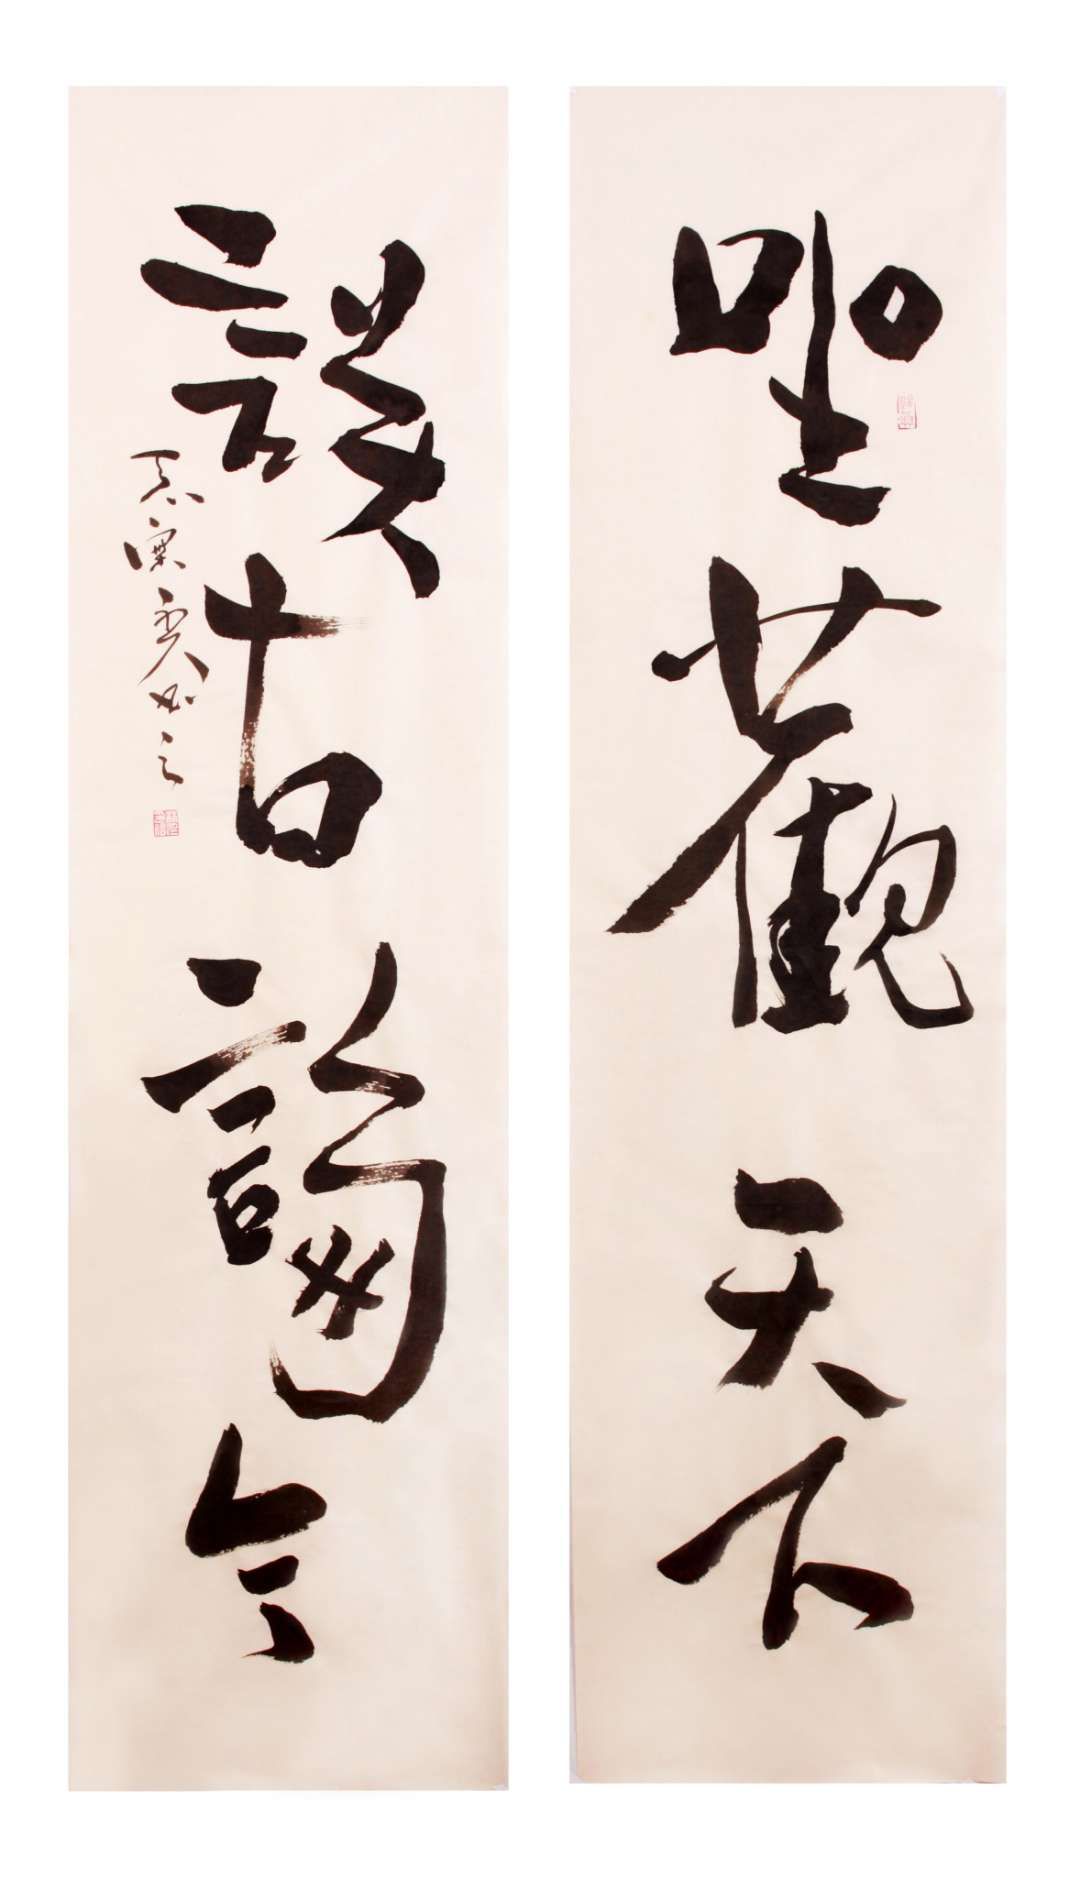 坐觀天下
談古論今